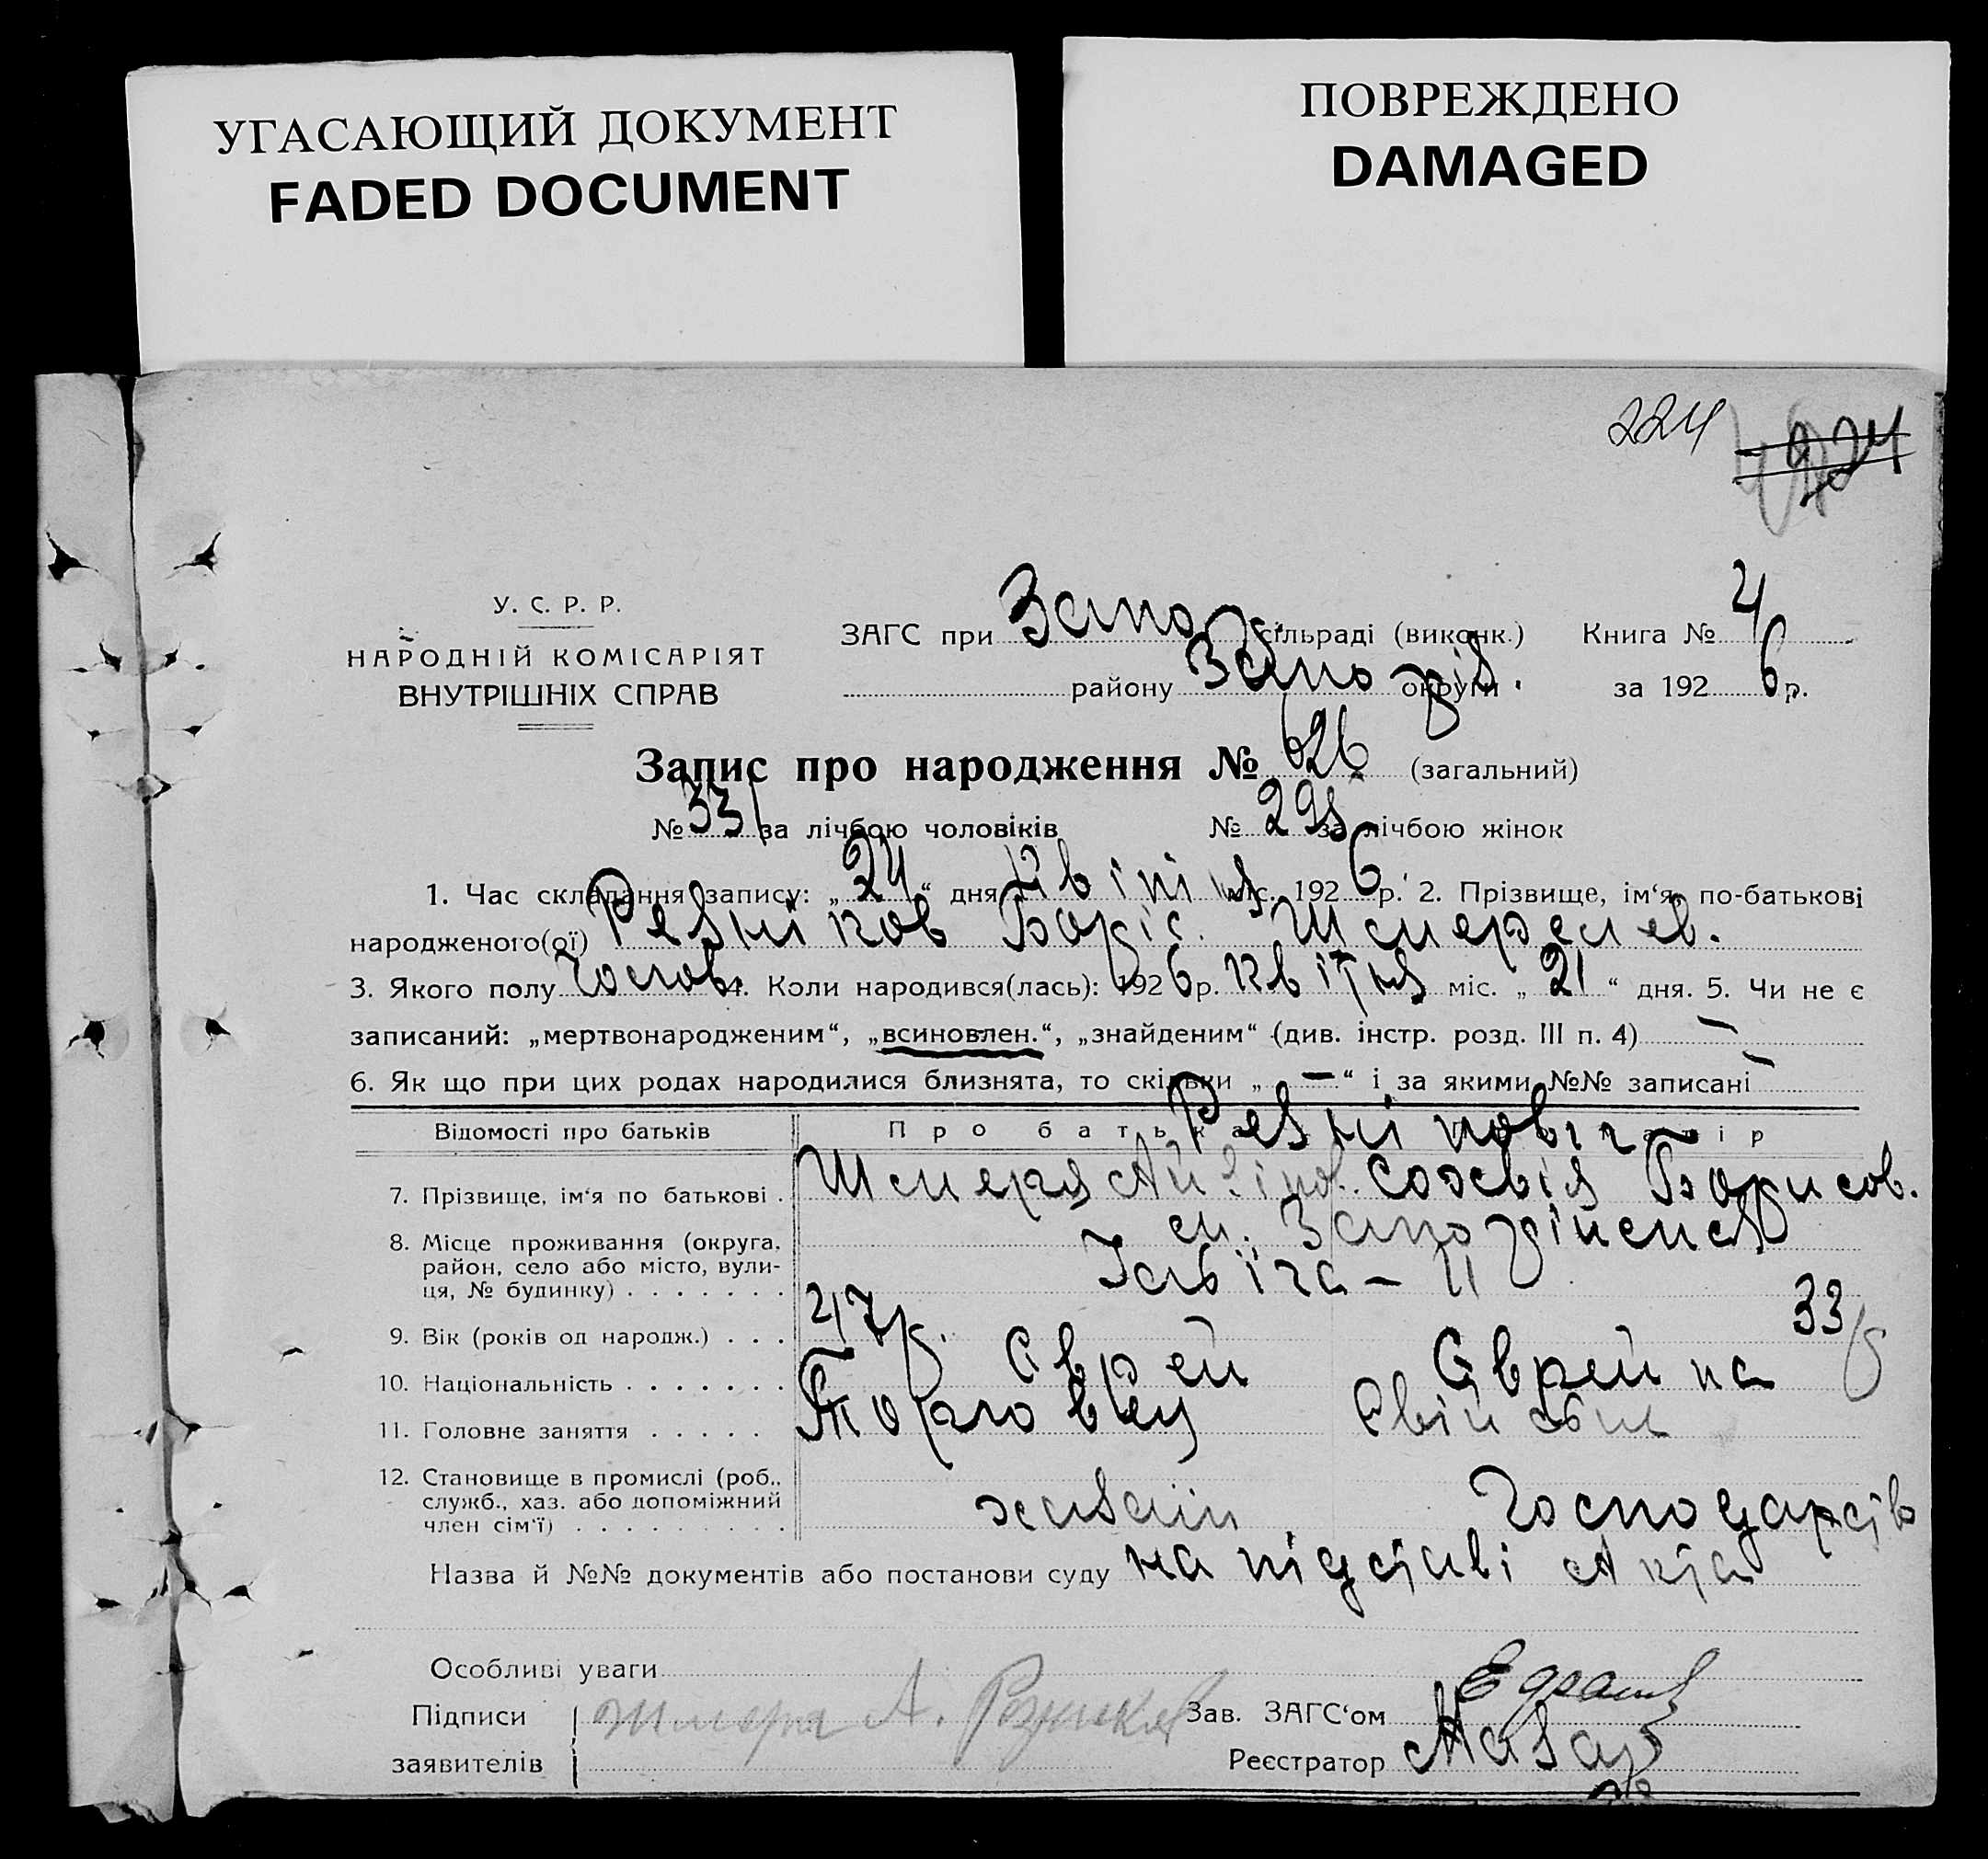 УГАСАЮЩИЙ ДОКУМЕНТ
FADED DOCUMENT
ПОВРЕЖДЕНО
DAMAGED
224 224
У. С. Р. Р.
НАРОДНІЙ КОМІСАРІЯТ
ВНУТРІШНІХ СПРАВ
ЗАГС при Запо сільраді (виконк.) Книга № 4
району Запоріз. округи за 1926 р.
Запис про народження № 626 (загальний)
№ 331 за лічбою чоловіків № 295 за лічбою жінок
1. Час складання запису: „24“ дня Квітня міс. 1926 р. 2. Прізвище, ім‘я, по-батькові
народженого(ої) Резніков Боріс. Шмерелев.
3. Якого полу Чолов. 4. Коли народився(лась): 1926 р. Квітня міс. „21“ дня. 5. Чи не є
записаний: „мертвонародженим“, „всиновлен.“, „знайденим“ (див. інстр. розд. III п. 4) —
6. Як що при цих родах народилися близнята, то скільки „—“ і за якими №№ записані —
Відомості про батьків Про батька
7. Прізвище, ім‘я по батькові . Шмеря Борисов.
8. Місце проживання (округа, район, село або місто, вули- ця, № будинку) . . . . . . . м. Запоріжжя
9. Вік (років од народж.) . . . 47 р. 33
10. Національність . . . . . . . Єврей Єврейка
11. Головне заняття . . . . . Торговец Свійськ
12. Становище в промислі (роб., служб., хаз. або допоміжний член сім‘ї) . . . . . . . . . хазаїн Господарств
Назва й №№ документів або постанови суду на підставі Акта
Особливі уваги
Підписи
заявителів
Шмеря А. Резников
Зав. ЗАГС‘ом
Реєстратор